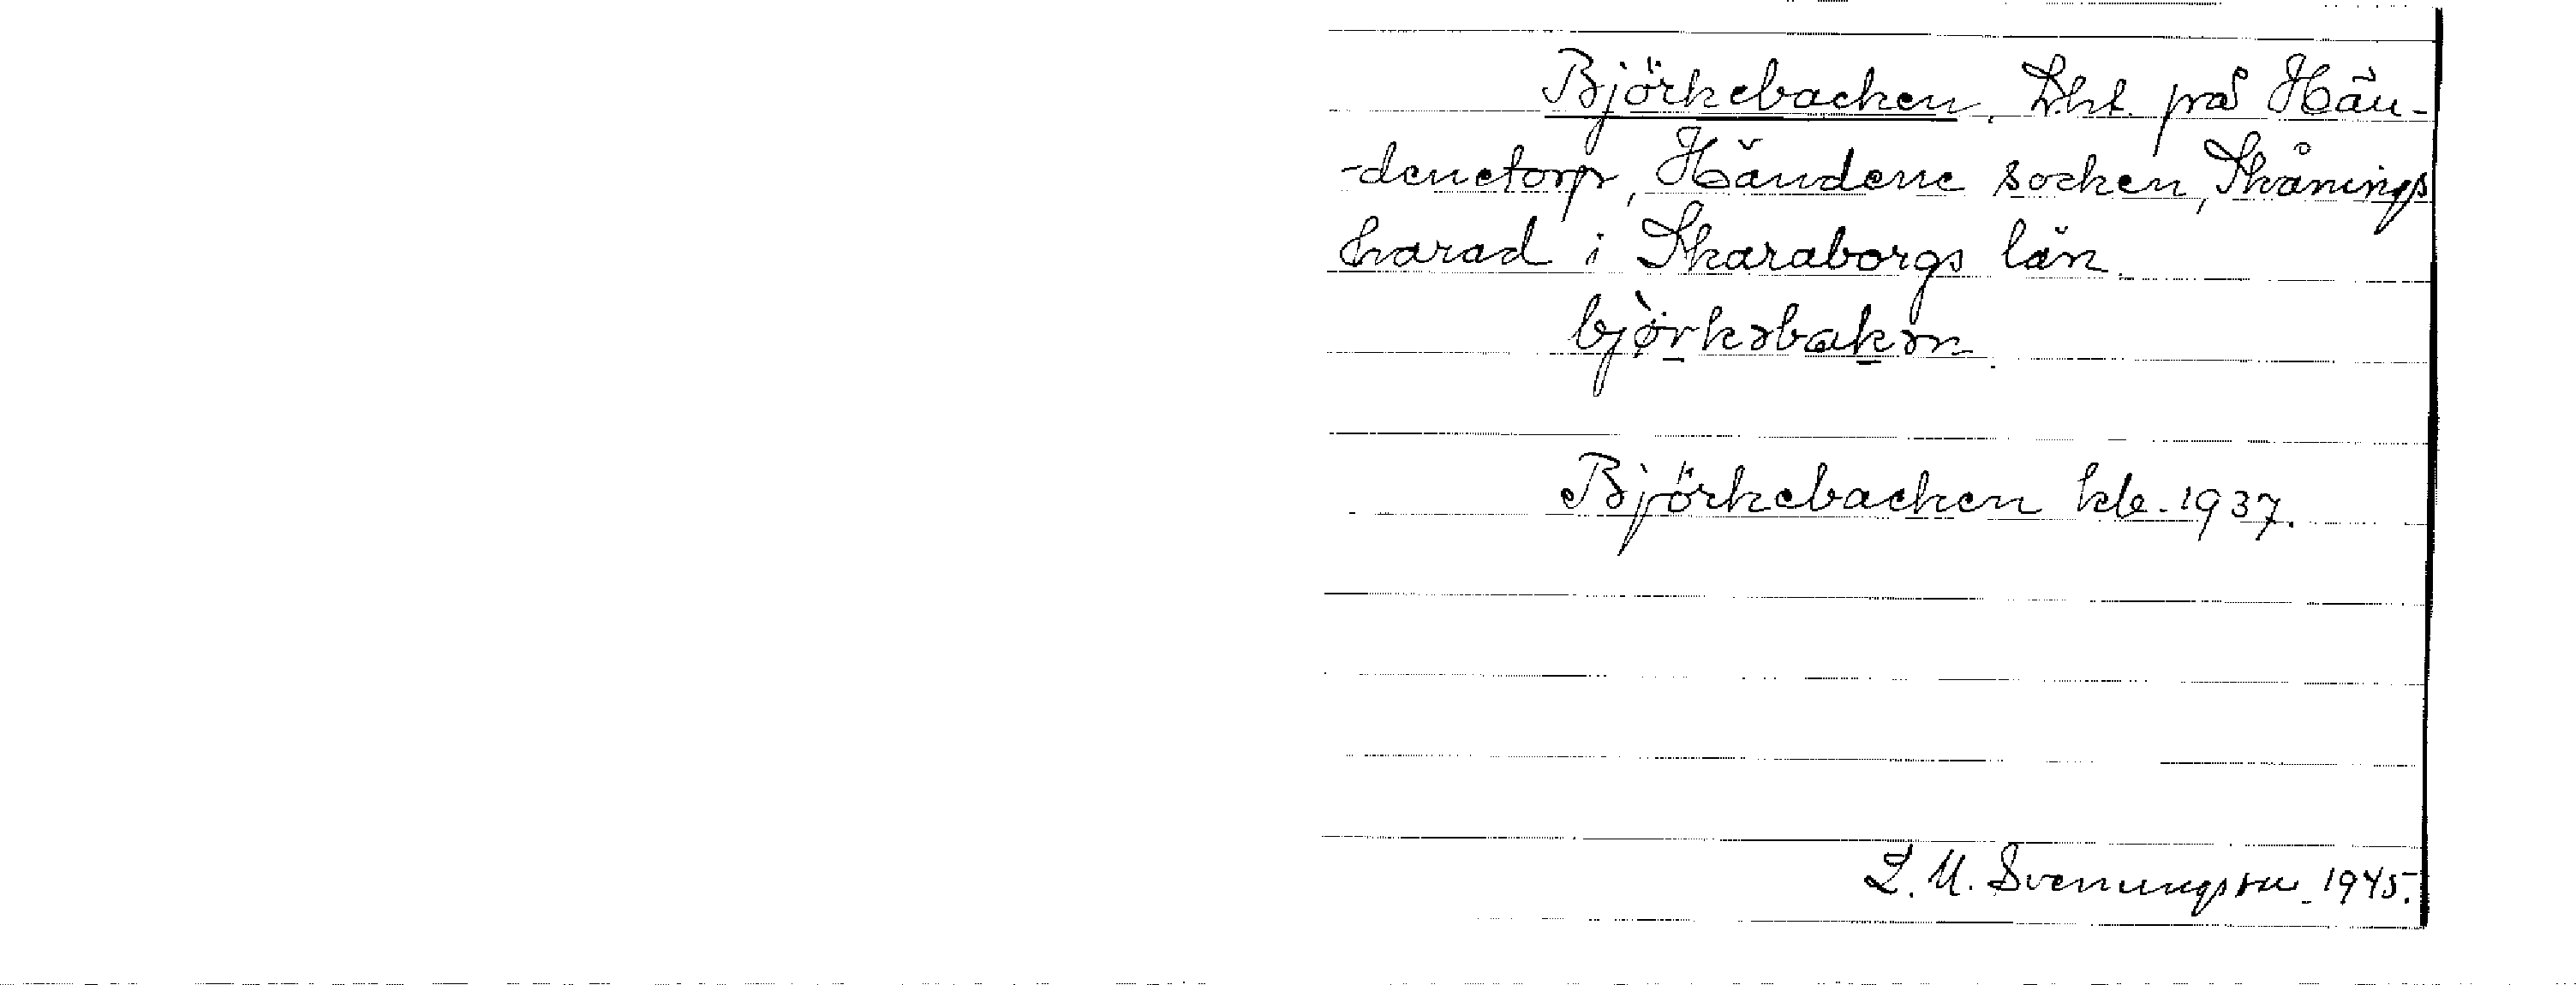 Björkebacken. Lht. på Hän-
-denetorp, Händene socken, Skånings
harad i Skaraborgs län.
bjòrkəbakən.
Björkebacken kb. 1937.
L. M. Svenungsson 1945.